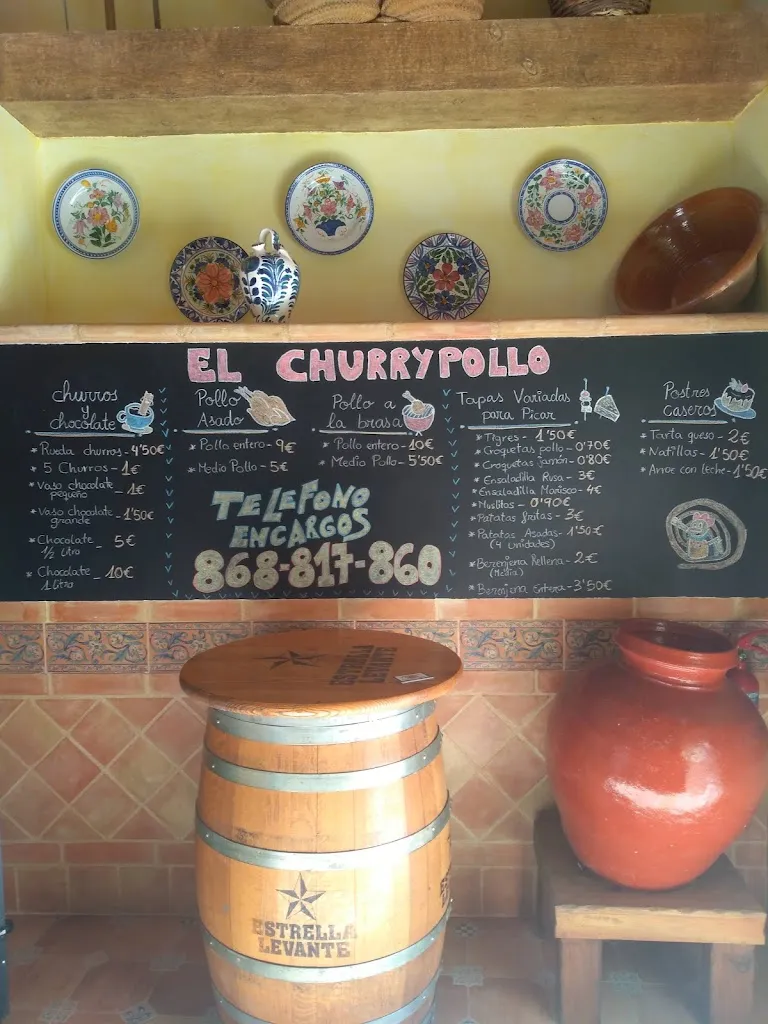 EL CHURRYPOLLO
churros
y
chocolate
* Rueda churros - 4'50€
* 5 Churros - 1€
* Vaso chocolate - 1€
pequeño
* Vaso chocolate - 1'50€
grande
* Chocolate - 5€
1/2 litro
* Chocolate - 10€
1 litro
Pollo
Asado
* Pollo entero - 9€
* Medio Pollo - 5€
Pollo a
la brasa
* Pollo entero - 10€
* Medio Pollo - 5'50€
TELEFONO
ENCARGOS
868-817-860
Tapas Variadas
para Picar
* Tigres - 1'50€
* Croquetas pollo - 0'70€
* Croquetas jamón - 0'80€
* Ensaladilla Rusa - 3€
* Ensaladilla Marisco - 4€
* Muslitos - 0'90€
* Patatas fritas - 3€
* Patatas Asadas - 1'50€
(4 unidades)
* Berenjena Rellena - 2€
(Media)
* Berenjena Entera - 3'50€
Postres
caseros
* Tarta queso - 2€
* Natillas - 1'50€
* Arroz con leche - 1'50€
ESTRELLA
LEVANTE
ESTRELLA
LEVANTE